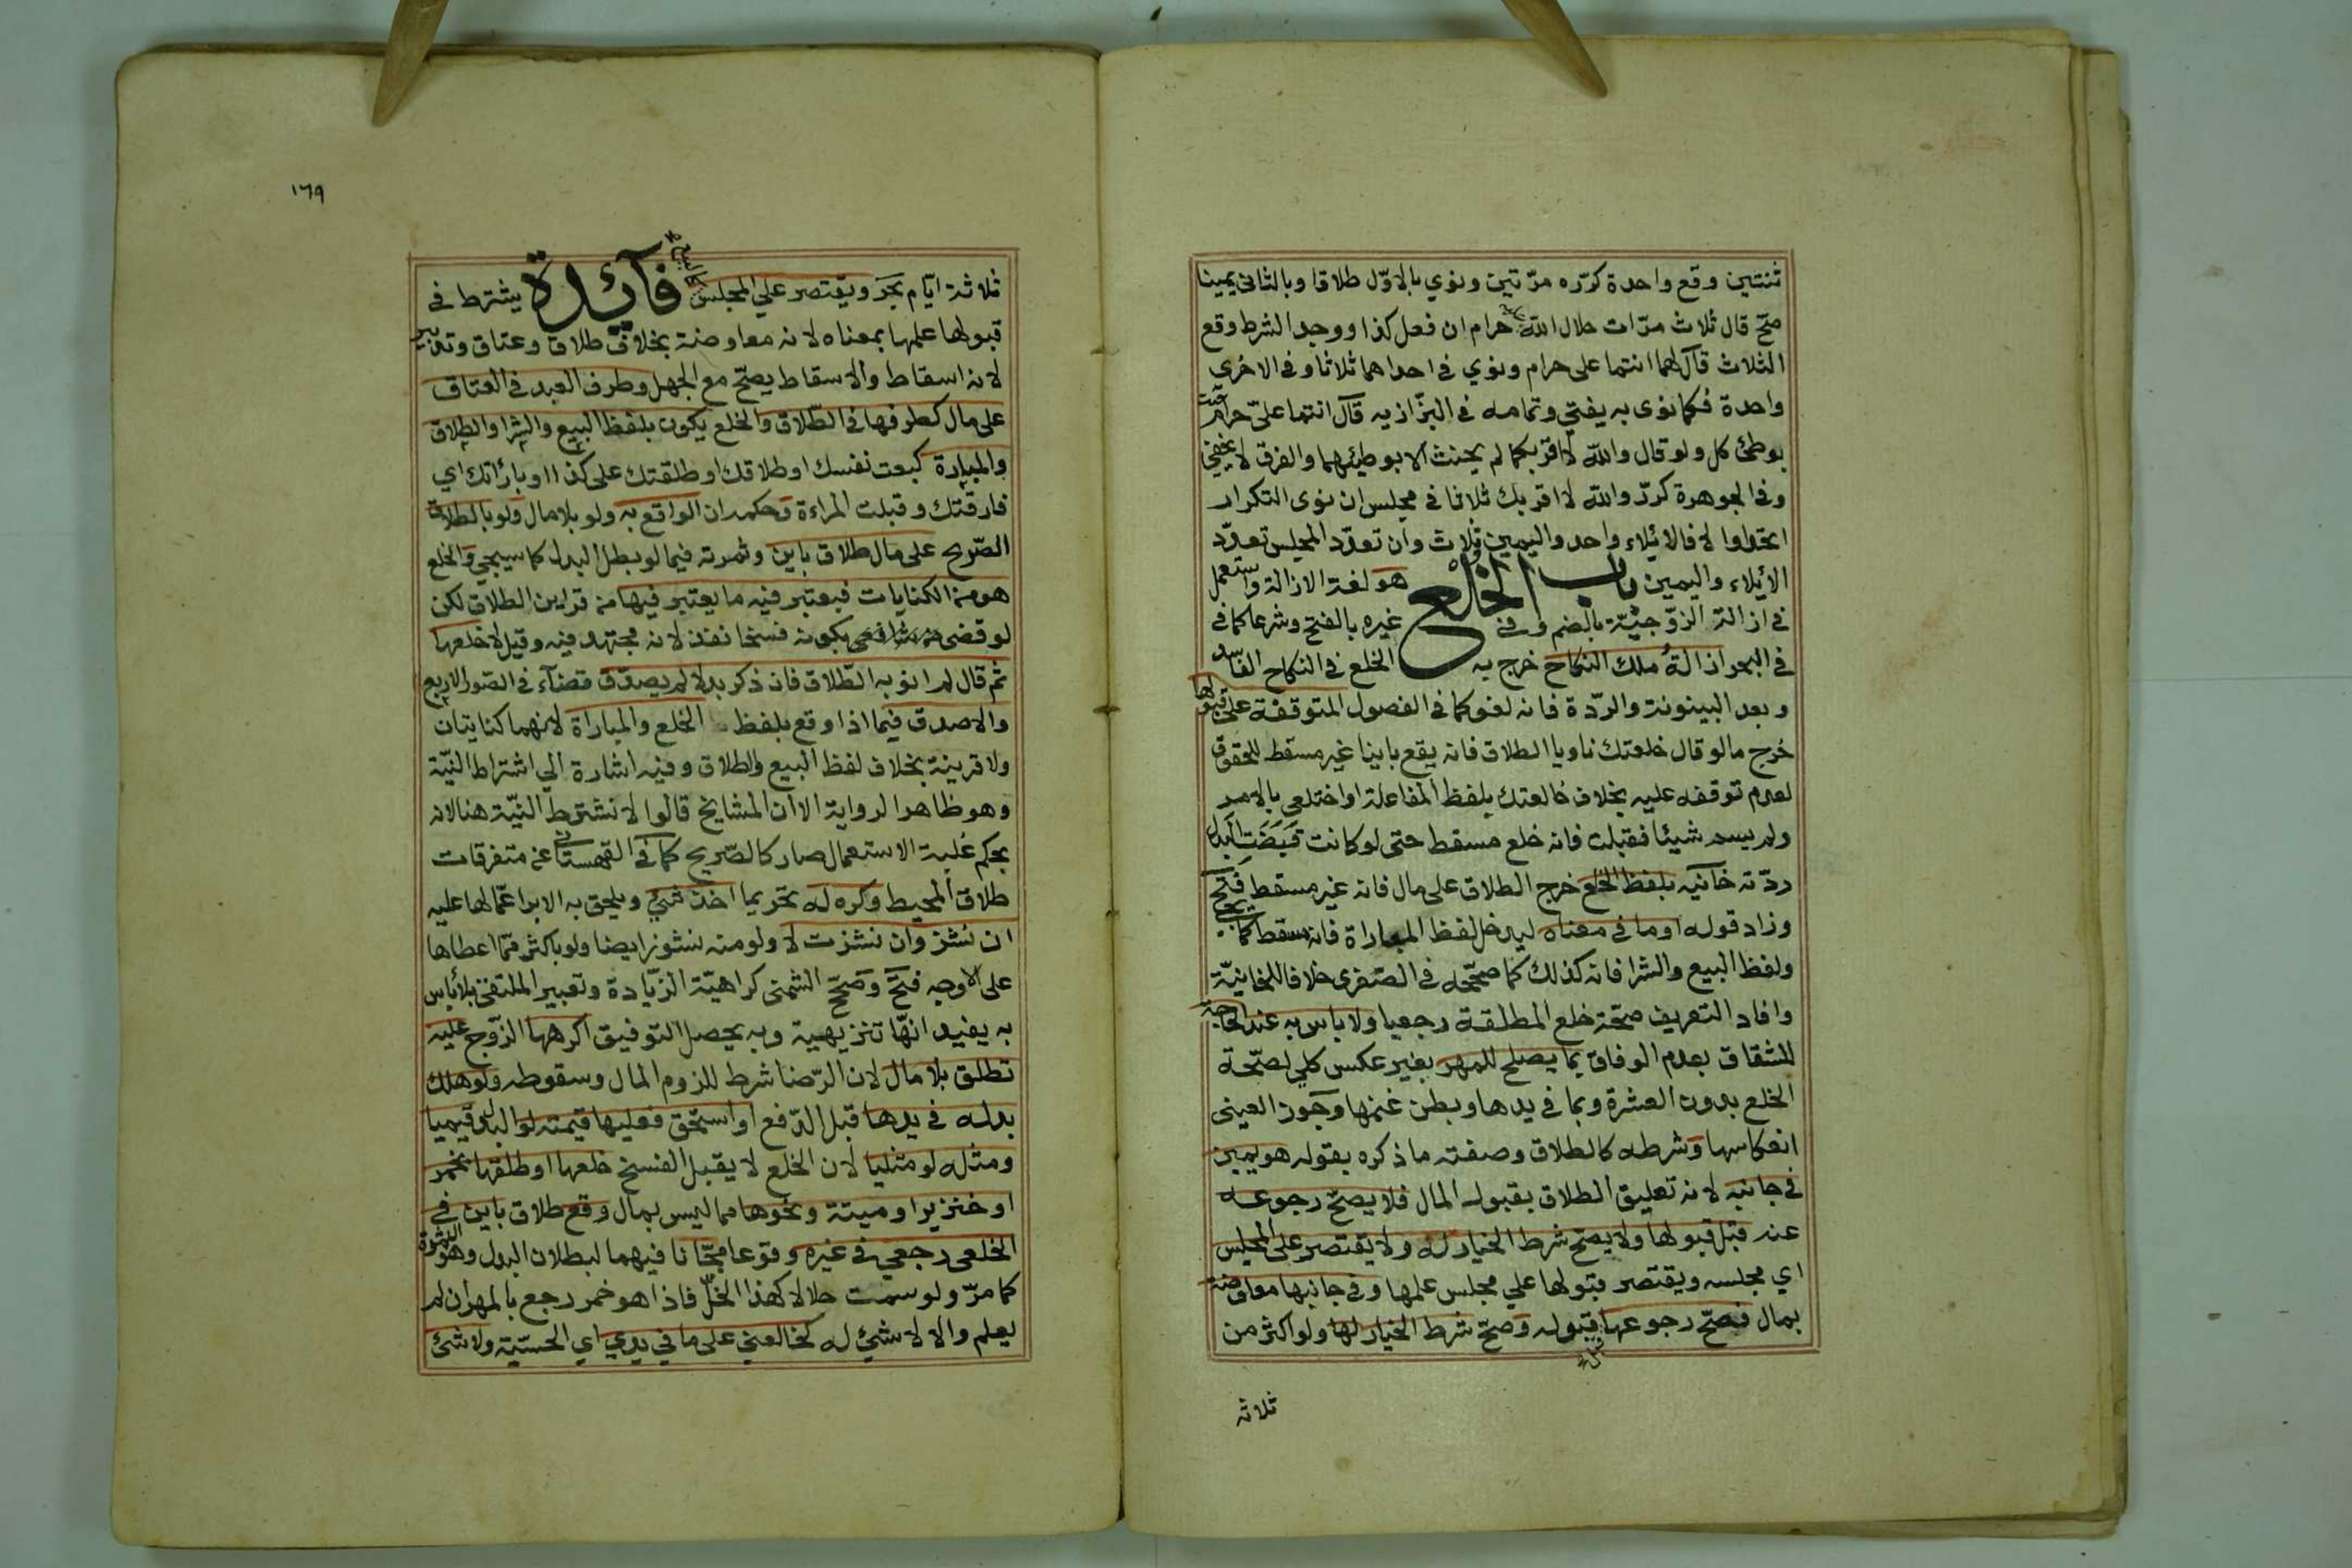 ثنتين وقع واحدة كرّره مرّتين ونوي بالاوّل طلاقا وبالثاني يمينا
صحّ قال ثلاث مرّات حلال الله عليه حرام ان فعل كذا ووجد الشرط وقع
الثلاث قال لهما انتما على حرام ونوي في احداهما ثلاثا وفي الاخرى
واحدة فكما نوى به يفتي وتمامه في البزّازيه قال انتما عليّ حرام حنث
بوطئ كل ولو قال والله لا اقربكما لم يحنث الا بوطئهما والفرق لا يخفي
وفي الجوهرة كرّر والله لا اقربك ثلاثا في مجلس ان نوى التكرار
اتحدا والا فالايلاء واحد واليمين ثلاث وان تعدّد المجلس تعدّد
الايلاء واليمين باب الخلع هو لغة الازالة واستعمل
في ازالة الزوجيّة بالضم وفي غيره بالفتح وشرعا كما في
في البحر ازالة ملك النكاح خرج به الخلع في النكاح الفاسد
وبعد البينونة والرّدة فانه لغو كما في الفصول المتوقفة على قبولها
خرج ما لو قال خلعتك ناويا الطلاق فانه يقع باينا غير مسقط للحقوق
لعدم توقفه عليه بخلاف خالعتك بلفظ المفاعلة او اختلعي بالامر
ولم يسم شيئا فقبلت فانه خلع مسقط حتى لو كانت قبضت البدل
ردّته خانيه بلفظ الخلع خرج الطلاق على مال فانه غير مسقط فتح
وزاد قوله او ما في معناه ليدخل لفظ المباراة فانه مسقط كما يجي
ولفظ البيع والشرا فانه كذلك كما صحّحه في الصّغرى خلافا للخانيّة
وافاد التعريف صحّة خلع المطلقة رجعيا ولا باس به عند الحاجة
للشقاق بعدم الوفاق بما يصلح للمهر بغير عكس كلي لصحّة
الخلع بدون العشرة وبما في يدها وبطن غنمها وجوز العيني
انعكاسها وشرطه كالطلاق وصفته ما ذكره بقوله هو يمين
في جانبه لانه تعليق الطلاق بقبول المال فلا يصحّ رجوعه
عنه قبل قبولها ولا يصحّ شرط الخيار له ولا يقتصر على المجلس
اي مجلسه ويقتصر قبولها علي مجلس علمها وفي جانبها معاوضة
بمال فصحّ رجوعها قبل قبوله وصحّ شرط الخيار لها ولو اكثر من
ثلاثه
١٦٩
ثلاثة ايّام بحر ويقتصر علي المجلس كالبيع فآئدة يشترط في
قبولها علمها بمعناه لانه معاوضة بخلاف طلاق وعتاق وتدبير
لانه اسقاط والاسقاط يصحّ مع الجهل وطرف العبد في العتاق
على مال كطرفها في الطّلاق والخلع يكون بلفظ البيع والشرا والطلاق
والمباراة كبعت نفسك او طلاقك او طلقتك على كذا او بارأتك اي
فارقتك وقبلت المراءة وحكمه ان الواقع به ولو بلا مال ولو بالطلاق
الصّريح على مال طلاق باين وثمرته فيما لو بطل البدل كما سيجي والخلع
هو من الكنايات فيعتبر فيه ما يعتبر فيها من قراين الطلاق لكن
لو قضى بكونه فسخا نفذ لانه مجتهد فيه وقيل لا خلعها
ثم قال لم انو به الطّلاق فان ذكر بدلا لم يصدّق قضآء في الصّور الاربع
والا صدق فيما اذا وقع بلفظ الخلع والمباراة لانهما كنايتان
ولا قرينة بخلاف لفظ البيع والطلاق وفيه اشارة الي اشتراط النيّة
وهو ظاهر الرواية الا ان المشايخ قالوا لا تشترط النيّة هنا لانه
بحكم غلبة الاستعمال صار كالصّريح كما في القهستاني عن متفرقات
طلاق المحيط وكره له تحريما اخذ شيئ ويلحق به الابرا عمّا لها عليه
ان نشز وان نشزت لا ولو منه نشوز ايضا ولو باكثر ممّا اعطاها
على الاوجه فتح وصحّح الشمني كراهيّة الزيّادة وتعبير الملتقى بلا باس
به يفيد انهّا تنزيهية وبه يحصل التوفيق اكرهها الزوج عليه
تطلق بلا مال لان الرّضا شرط للزوم المال وسقوطه ولو هلك
بدله في يدها قبل الدّفع او استحق فعليها قيمته لو البدل قيميا
ومثله لو مثليا لان الخلع لا يقبل الفسخ خلعها او طلقها بخمر
او خنزير او ميتة ونحوها مما ليس بمال وقع طلاق باين في
الخلعى رجعي في غيره وقوعا مجّانا فيهما لبطلان البدل وهو الثمرة
كما مرّ ولو سمت حلالا كهذا الخلّ فاذا هو خمر رجع بالمهر ان لم
يعلم والا لا شيئ له كخالعني على ما في يدي اي الحسّية ولا شئ